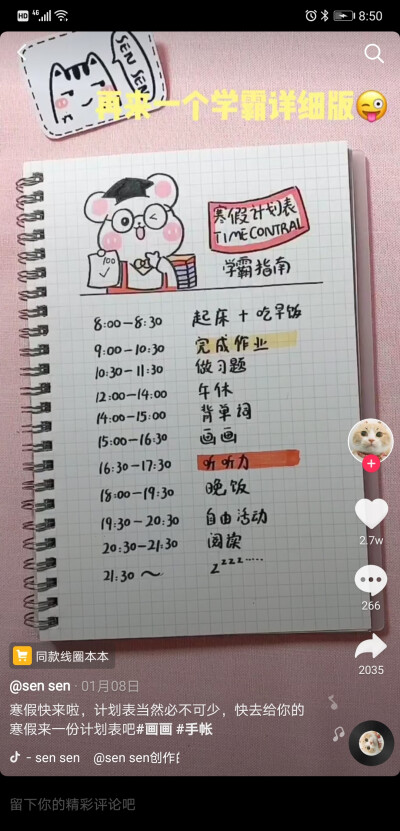 HD 4G 8:50
SEN SEN
再来一个学霸详细版
寒假计划表
TIME CONTRAL
学霸指南
100
8:00-8:30 起床+吃早饭
9:00-10:30 完成作业
10:30-11:30 做习题
12:00-14:00 午休
14:00-15:00 背单词
15:00-16:30 画画
16:30-17:30 听听力
18:00-19:30 晚饭
19:30-20:30 自由活动
20:30-21:30 阅读
21:30~ zzzzz……
2.7w
266
2035
同款线圈本本
@sen sen · 01月08日
寒假快来啦，计划表当然必不可少，快去给你的
寒假来一份计划表吧#画画 #手帐
- sen sen @sen sen创作的
留下你的精彩评论吧